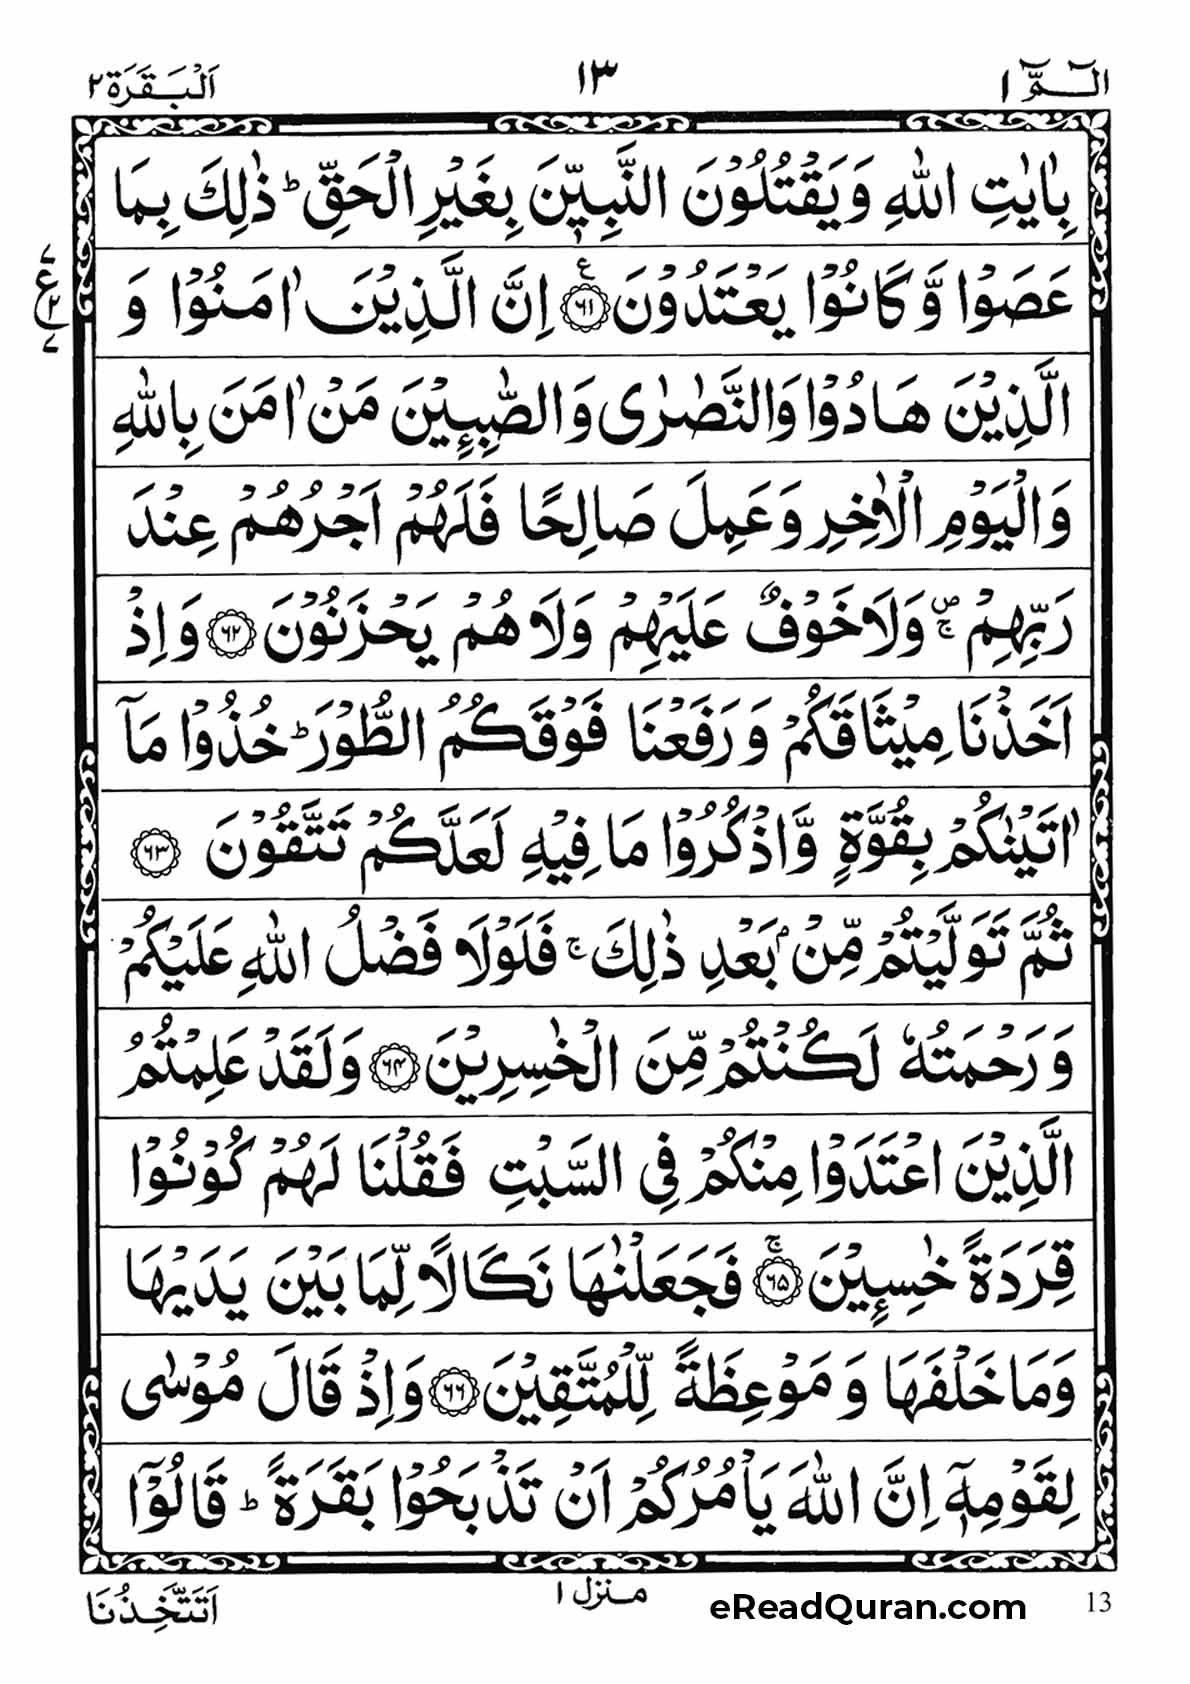 الٓمّٓ ١ ١٣ اَلْبَقَرَة ٢
بِاٰيٰتِ اللّٰهِ وَيَقْتُلُوْنَ النَّبِيّٖنَ بِغَيْرِ الْحَقِّ ؕ ذٰلِكَ بِمَا
عَصَوْا وَّكَانُوْا يَعْتَدُوْنَ ﴿٦١﴾ ع اِنَّ الَّذِيْنَ اٰمَنُوْا وَ
الَّذِيْنَ هَادُوْا وَالنَّصٰرٰى وَالصّٰبِـِٕيْنَ مَنْ اٰمَنَ بِاللّٰهِ
وَالْيَوْمِ الْاٰخِرِ وَعَمِلَ صَالِحًا فَلَهُمْ اَجْرُهُمْ عِنْدَ
رَبِّهِمْ ۪ۚ وَلَا خَوْفٌ عَلَيْهِمْ وَلَا هُمْ يَحْزَنُوْنَ ﴿٦٢﴾ وَاِذْ
اَخَذْنَا مِيْثَاقَكُمْ وَرَفَعْنَا فَوْقَكُمُ الطُّوْرَ ؕ خُذُوْا مَاۤ
اٰتَيْنٰكُمْ بِقُوَّةٍ وَّاذْكُرُوْا مَا فِيْهِ لَعَلَّكُمْ تَتَّقُوْنَ ﴿٦٣﴾
ثُمَّ تَوَلَّيْتُمْ مِّنْۢ بَعْدِ ذٰلِكَ ۚ فَلَوْلَا فَضْلُ اللّٰهِ عَلَيْكُمْ
وَرَحْمَتُهٗ لَكُنْتُمْ مِّنَ الْخٰسِرِيْنَ ﴿٦٤﴾ وَلَقَدْ عَلِمْتُمُ
الَّذِيْنَ اعْتَدَوْا مِنْكُمْ فِي السَّبْتِ فَقُلْنَا لَهُمْ كُوْنُوْا
قِرَدَةً خٰسِـِٕيْنَ ﴿٦٥﴾ۚ فَجَعَلْنٰهَا نَكَالًا لِّمَا بَيْنَ يَدَيْهَا
وَمَا خَلْفَهَا وَ مَوْعِظَةً لِّلْمُتَّقِيْنَ ﴿٦٦﴾ وَاِذْ قَالَ مُوْسٰى
لِقَوْمِهٖۤ اِنَّ اللّٰهَ يَاْمُرُكُمْ اَنْ تَذْبَحُوْا بَقَرَةً ؕ قَالُوْۤا
اَتَتَّخِذُنَا منزل ١ eReadQuran.com 13